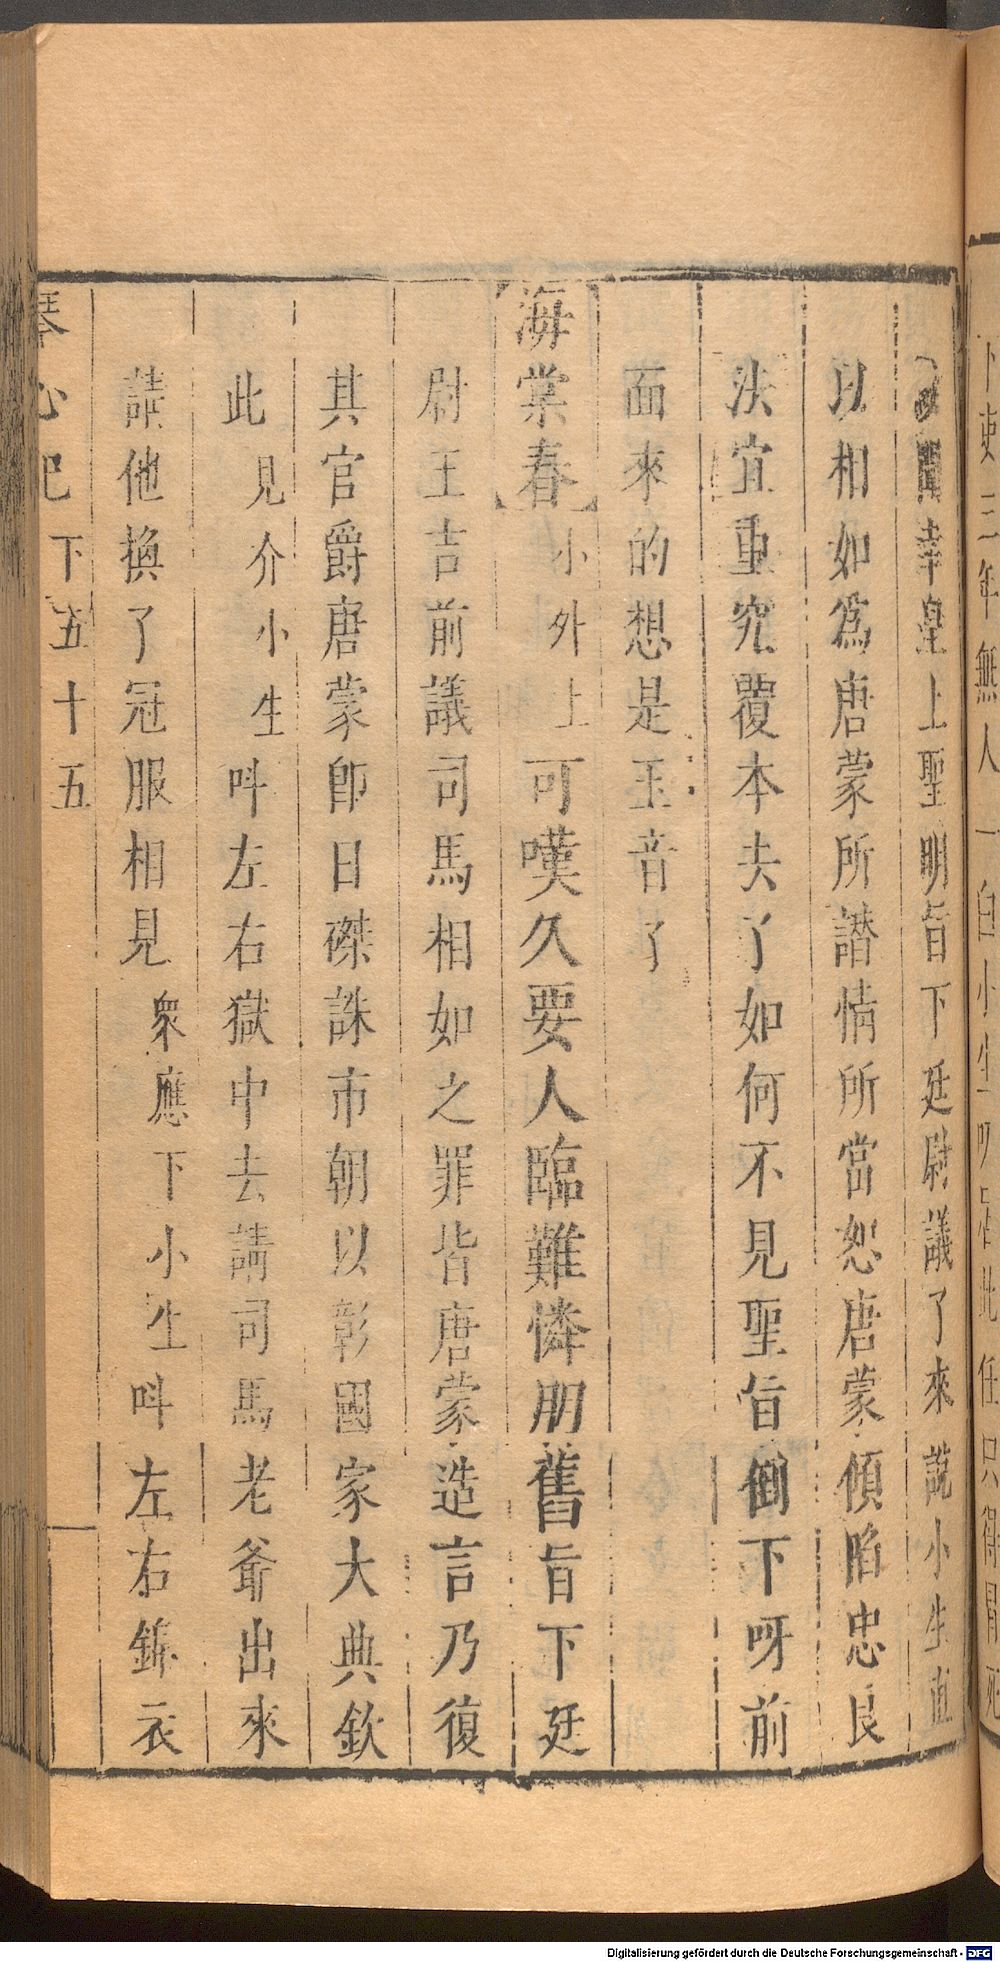 聞幸皇上聖明旨下廷尉議了來說小生直
以相如爲唐蒙所譖情所當恕唐蒙傾陷忠良
法宜重究覆本去了如何不見聖旨倒下呀前
面來的想是玉音了
海棠春 小外上 可嘆久要人臨難憐朋舊旨下廷
尉王吉前議司馬相如之罪皆唐蒙造言乃復
其官爵唐蒙卽日磔誅市朝以彰國家大典欽
此 見介小生 呌左右獄中去請司馬老爺出來
請他換了冠服相見 衆應下小生 呌左右錦衣
琴心記下 五十五
Digitalisierung gefördert durch die Deutsche Forschungsgemeinschaft - DFG